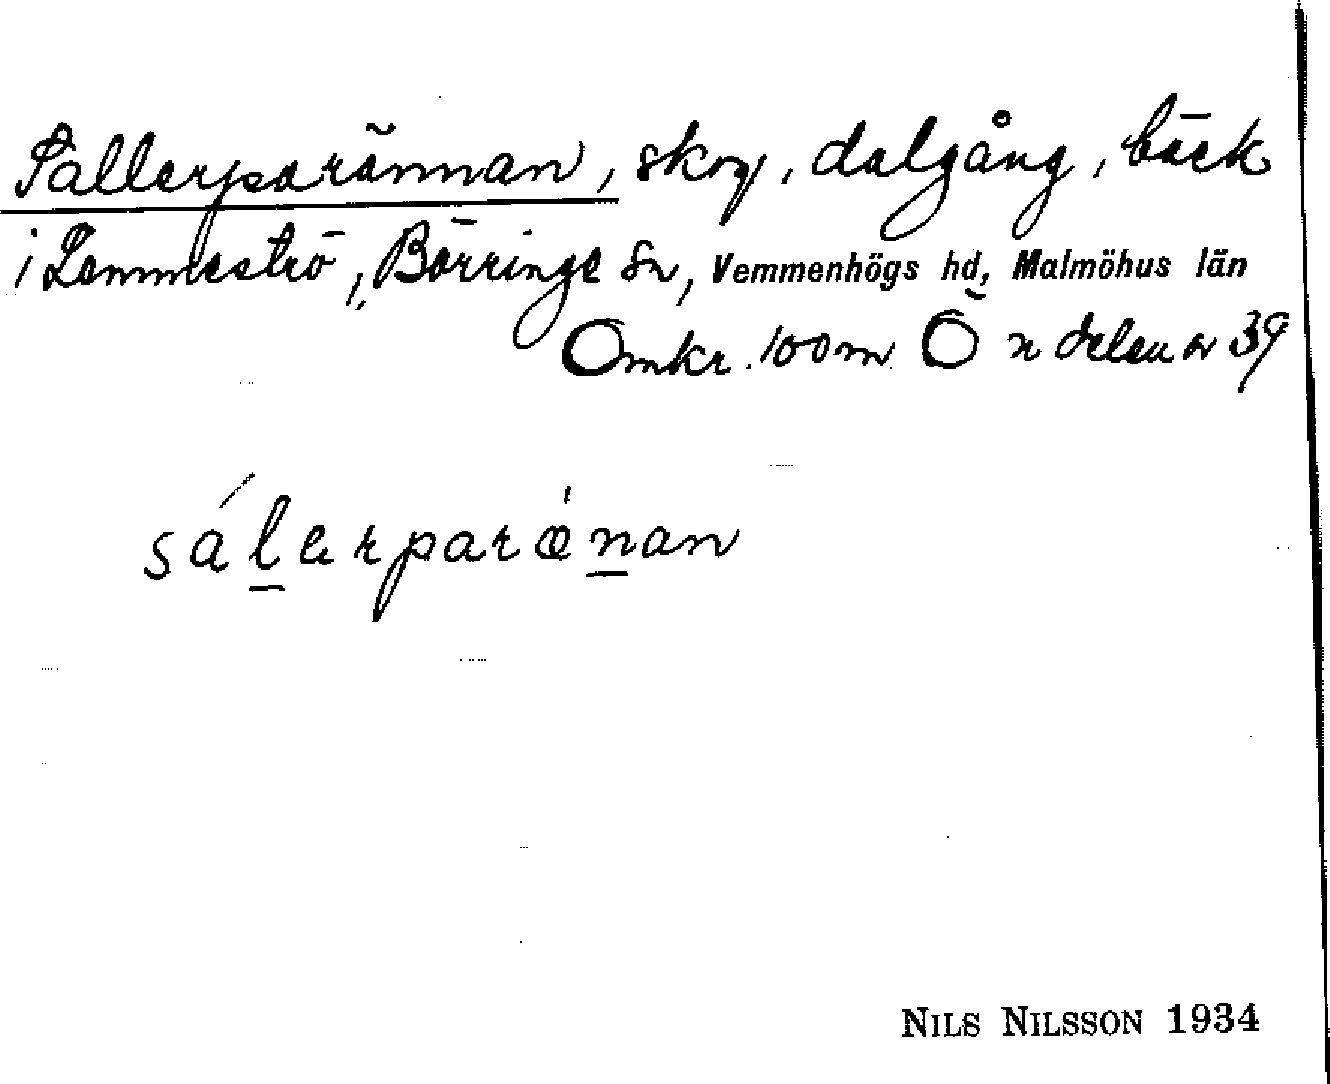 Sallerparännan, skog, dalgång, bäck
i Lemmeströ, Börringe Sn, Vemmenhögs hd, Malmöhus län
Omkr. 100 m Ö n delen av 39
sálerparǽnan
NILS NILSSON 1934